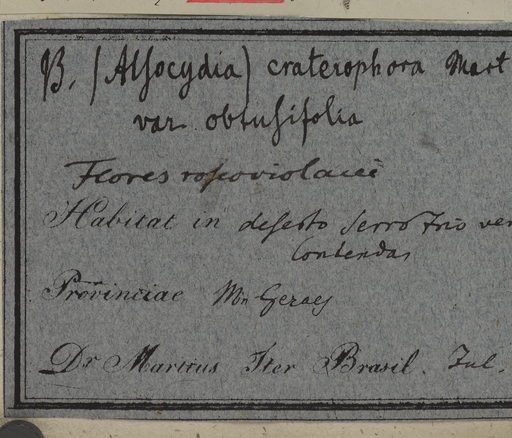 B. (Alsocydia) craterophora Mart
var obtusifolia
Flores roseoviolacei
Habitat in deserto Serro Frio ver
Contendas
Provinciae Mn Geraes
Dr Martius Iter Brasil. Jul.